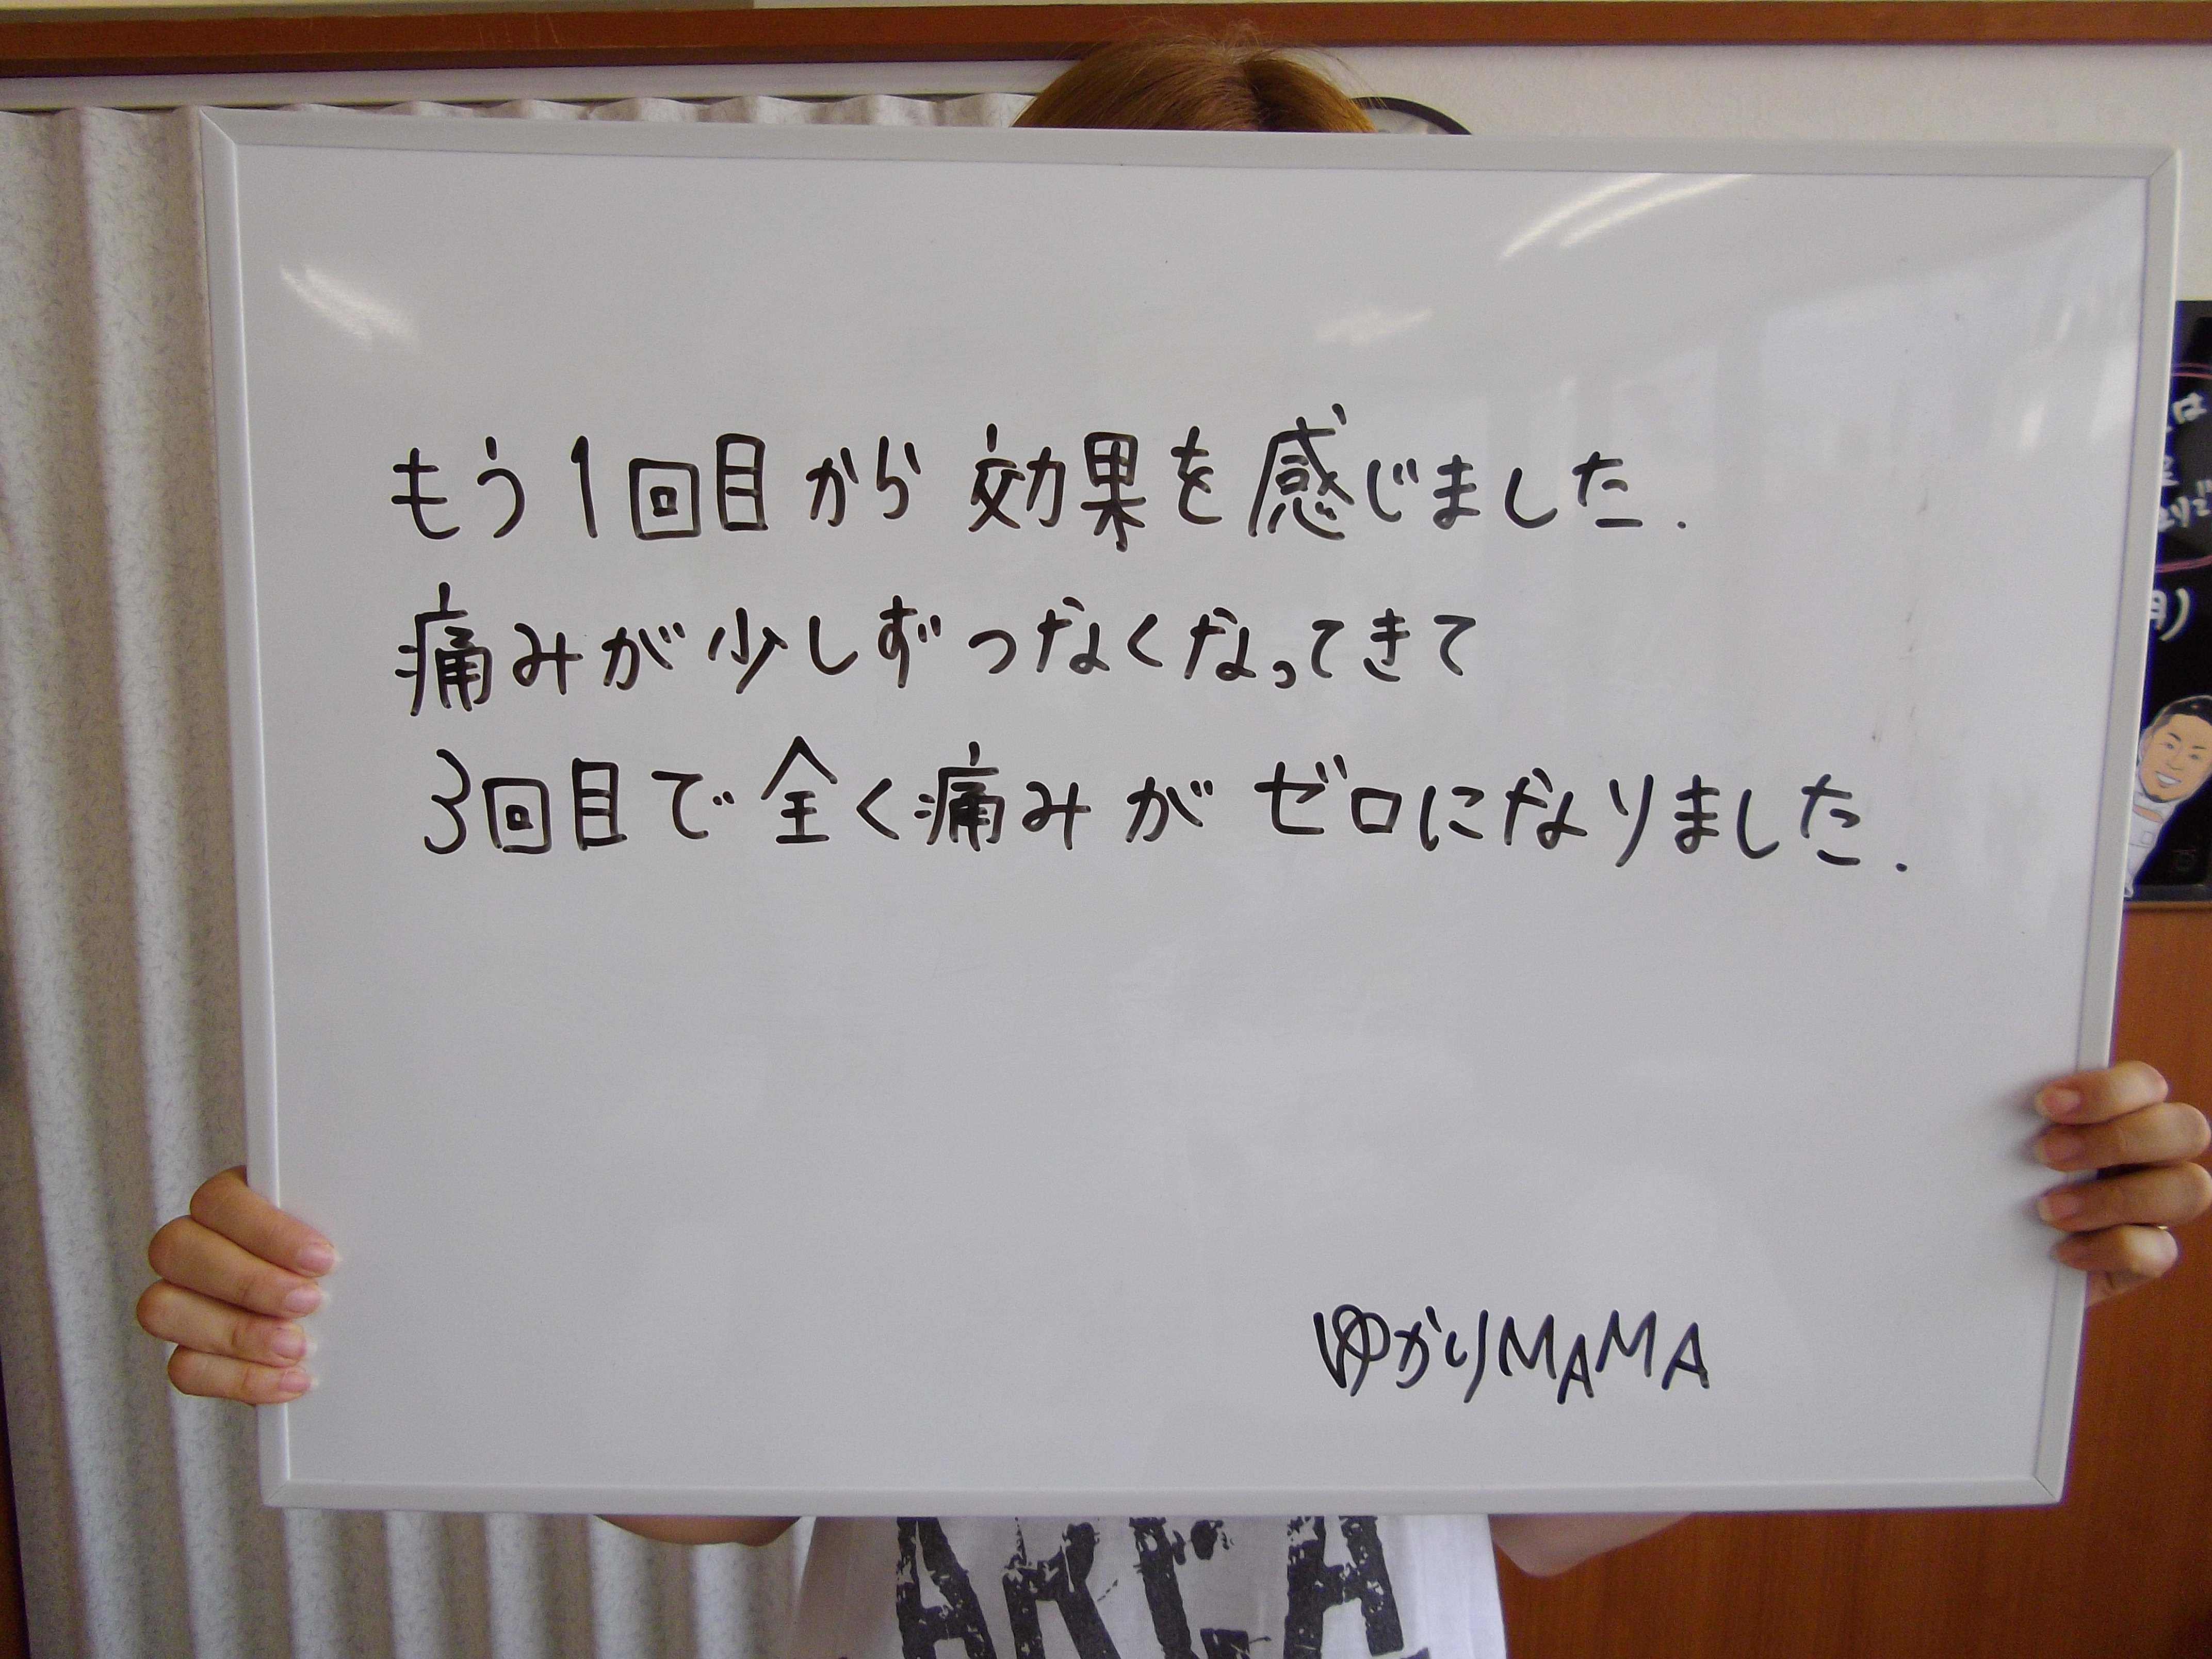 もう1回目から効果を感じました.
痛みが少しずつなくなってきて
3回目で全く痛みがゼロになりました.
ゆかりMAMA
AREA
は
月)